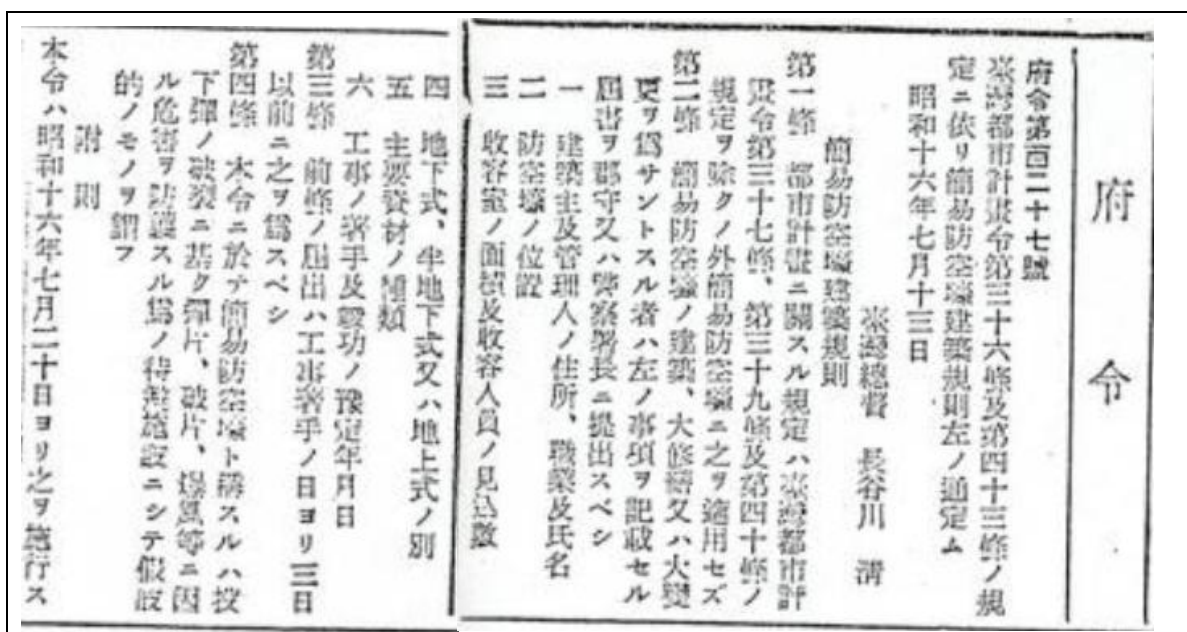 府令
府令第百二十七號
臺灣都市計畫令第三十六條及第四十三條ノ規
定ニ依リ簡易防空壕建築規則左ノ通定ム
昭和十六年七月十三日
臺灣總督 長谷川 淸
簡易防空壕建築規則
第一條 都市計畫ニ關スル規定ハ臺灣都市計
畫令第三十七條、第三十九條及第四十條ノ
規定ヲ除クノ外簡易防空壕ニ之ヲ適用セズ
第二條 簡易防空壕ノ建築、大修繕又ハ大變
更ヲ爲サントスル者ハ左ノ事項ヲ記載セル
屆書ヲ郡守又ハ警察署長ニ提出スベシ
一 建築主及管理人ノ住所、職業及氏名
二 防空壕ノ位置
三 收容室ノ面積及收容人員ノ見込數
四 地下式、半地下式又ハ地上式ノ別
五 主要資材ノ種類
六 工事ノ著手及竣功ノ豫定年月日
第三條 前條ノ屆出ハ工事著手ノ日ヨリ三日
以前ニ之ヲ爲スベシ
第四條 本令ニ於テ簡易防空壕ト稱スルハ投
下彈ノ破裂ニ基ク彈片、破片、爆風等ニ因
ル危害ヲ防護スル爲ノ待避施設ニシテ假設
的ノモノヲ謂フ
附則
本令ハ昭和十六年七月二十日ヨリ之ヲ施行ス